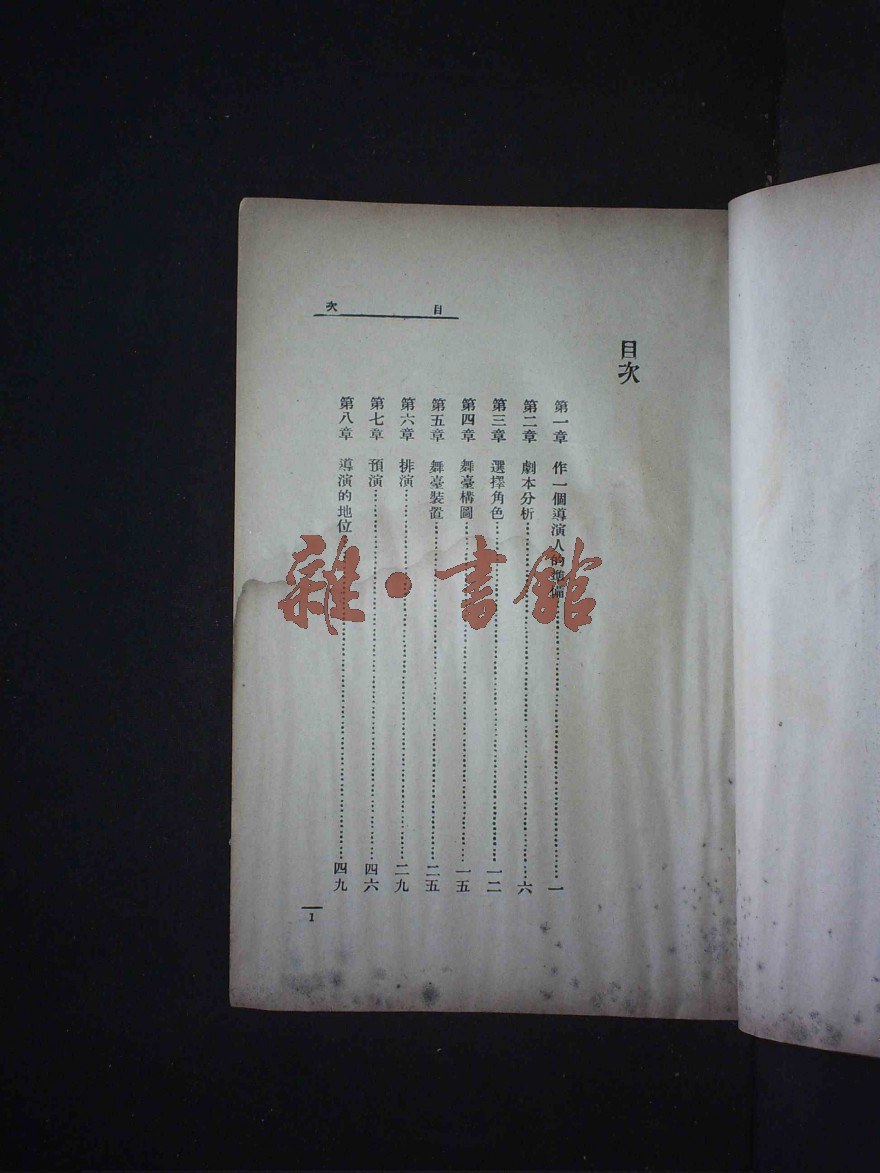 目次
第一章 作一個導演人的準備……一
第二章 劇本分析……六
第三章 選擇角色……一二
第四章 舞臺構圖……一五
第五章 舞臺裝置……二五
第六章 排演……二九
第七章 預演……四六
第八章 導演的地位……四九
目次
1
雜·書館